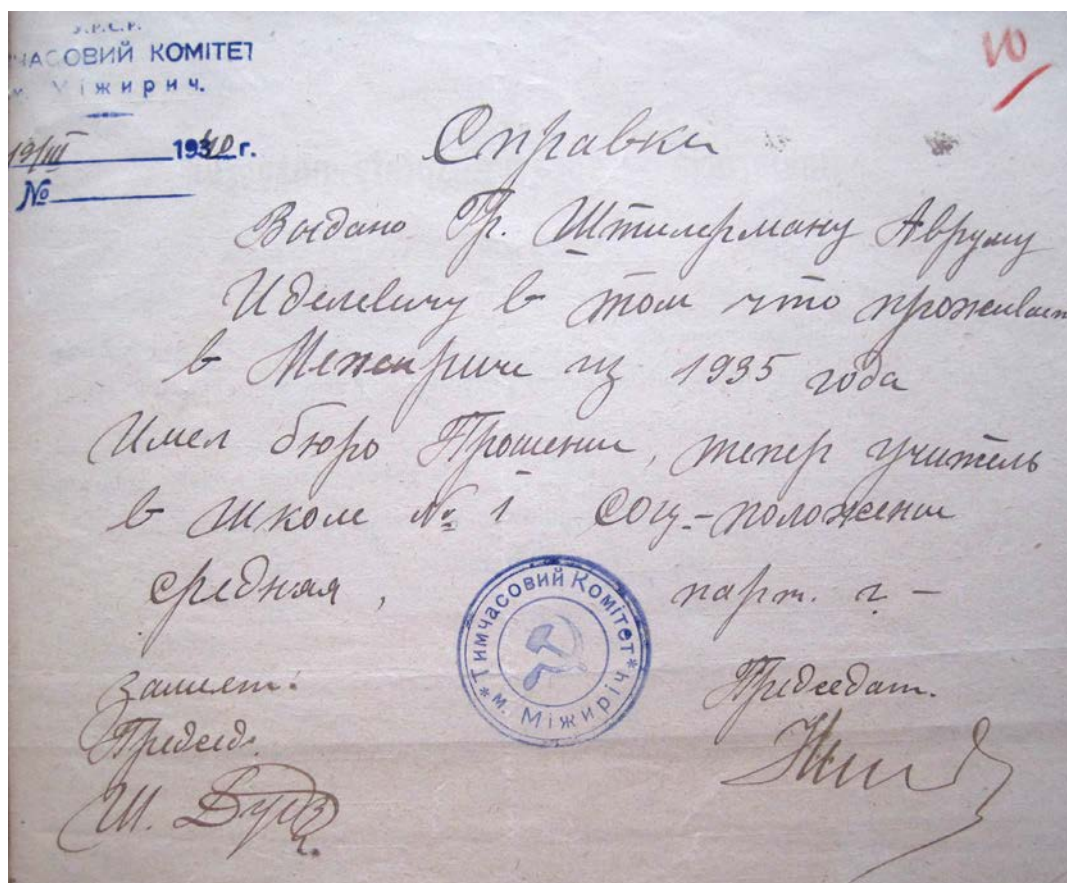 У.Р.С.Р.
ЧАСОВИЙ КОМІТЕТ
м. Міжирич.
19/III 1940 г.
№
10
Справка
Выдано Гр. Штилерману Авруму
Иделевичу в том что проживает
в Межириче из 1935 года
Имел бюро Прошении, тепер учитель
в школе № 1 соц.-положении
средная, парт. г. –
Тимчасовий Комітет
м. Міжиріч
Замест. Председат.
Председ.
Ш.